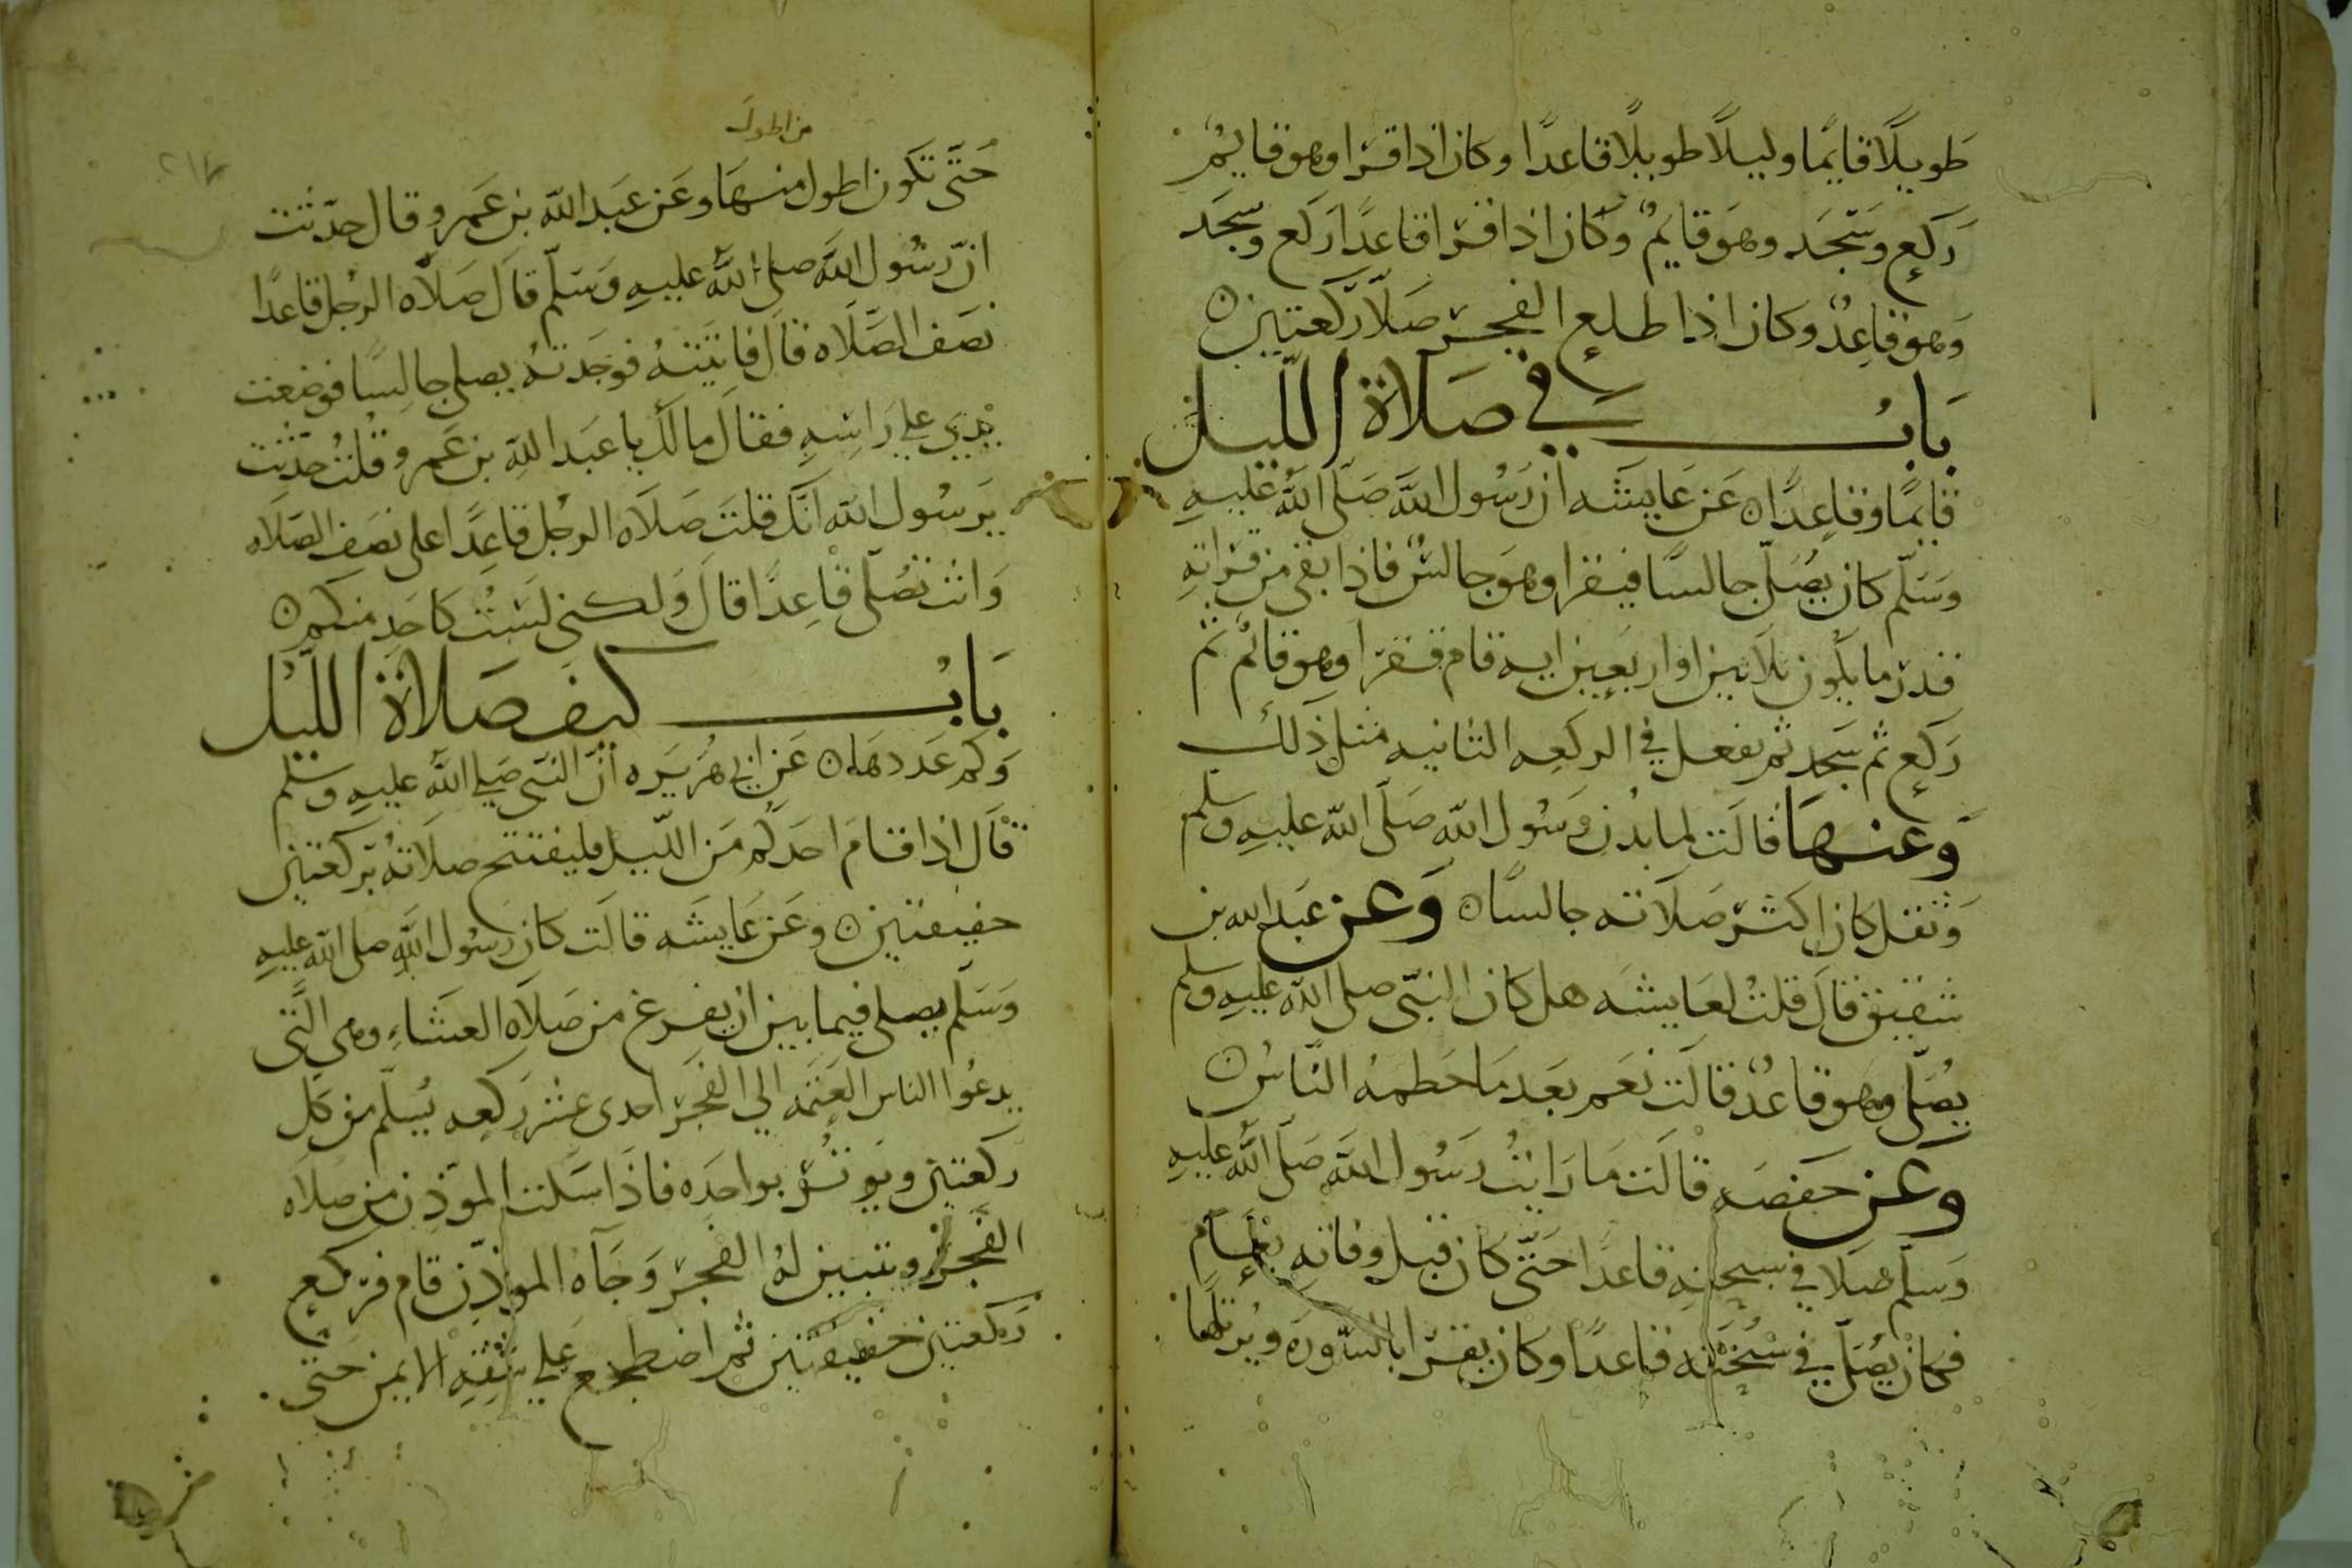 طَويلًا قايمًا وليلًا طويلًا قاعدًا وكان اذا قرا وهو قايم
رَكع وسَجَد وهو قايمٌ وكان اذا قرا قاعدًا رَكع وسجَد
وَهو قاعِدٌ وكان اذا طلع الفجر صَلّا رَكعتين ه
بَابُ في صَلاة اللّيل
قايمًا وقاعِدًا ه عَن عَايشَه ان رَسُول اللَّه صَلّى اللَّه عليهِ
وَسَلّم كان يُصَلّي جالسًا فيقرا وهوَ جالسٌ فاذا بقى من قراته
قدر ما يكُون ثلاثين او اربَعين ايه قام فقرا وهو قائمٌ ثم
رَكع ثم سَجد ثم يفعل في الركعه الثانيه مثل ذلك
وَعنهَا قالَت لما بدُن رَسُول اللَّه صَلّى اللَّه عليهِ وسلم
وَثقل كان اكثر صَلاته جالسًا ه وَعن عَبد الله بن
شقيق قال قلتُ لعَايشَه هل كان النبّي صلى اللَّه عليهِ وسلم
يُصَلّي وهو قاعدٌ قالَت نعَم بعَد مَا حَطمهُ النّاسُ ه
وعن حَفصَه قالَت مَا رَايتُ رَسُول اللَّه صَلّى اللَّه عَليهِ
وَسلّم صَلا في سبحتهِ قاعدًا حَتّى كان قبل وفاته بعَامٍ
فكان يُصَلّي في سُبْحَتِه قاعدًا وكان يقرا بالسّورَه ويُرتلها
من اطول
حَتّى تكون اطول منهَا وعَن عَبد اللَّه بن عَمرو قال حدّثت
انّ رسُول اللَّه صلى اللَّه عليهِ وَسَلّم قال صَلاه الرجُل قاعدًا
نصَف الصَّلَاه قال فاتيَتهُ فوجَدتهُ يصلي جالسًا فوضعت
يَدي علي رَاسِهِ فقالَ مالك يا عبَد اللهِ بن عَمرو قلتُ حدّثت
يَرسُول اللَّه انّك قلتَ صَلَاه الرجُل قاعِدًا على نصَف الصَّلَاه
وَانت تصُلّي قاعِدًا قالَ وَلكني لسَتُ كاحَدٍ منكم ه
بَابُ كيف صَلَاة اللّيْل
وَكم عَددهَا ه عَن ابي هُرَيرَه انّ النبّي صَلي اللَّه عليهِ وسلم
قالَ اذا قامَ احَدكُم مَن اللّيل فليفتتح صلَاتهُ برَكعتين
خفيفتين ه وعَن عَايشَه قالَت كان رَسُول اللَّه صلى اللَّه عليهِ
وَسَلّم يصلي فيما بين ان يفرغ من صَلاَه العشَاءِ وهي الَّتي
يدعُوا الناس العَتمَه الي الفَجر احدى عشر رَكعه يُسلّم من كل
ركعتين ويوتُر بواحدَه فاذَا سَكت الموذن من صَلاه
الفجر وتبين لهُ الفجر وَجَآه الموذّن قام فركع
رَكعتين خفيفتين ثم اضطجع عَلي شقِهِ الايمن حَتّى